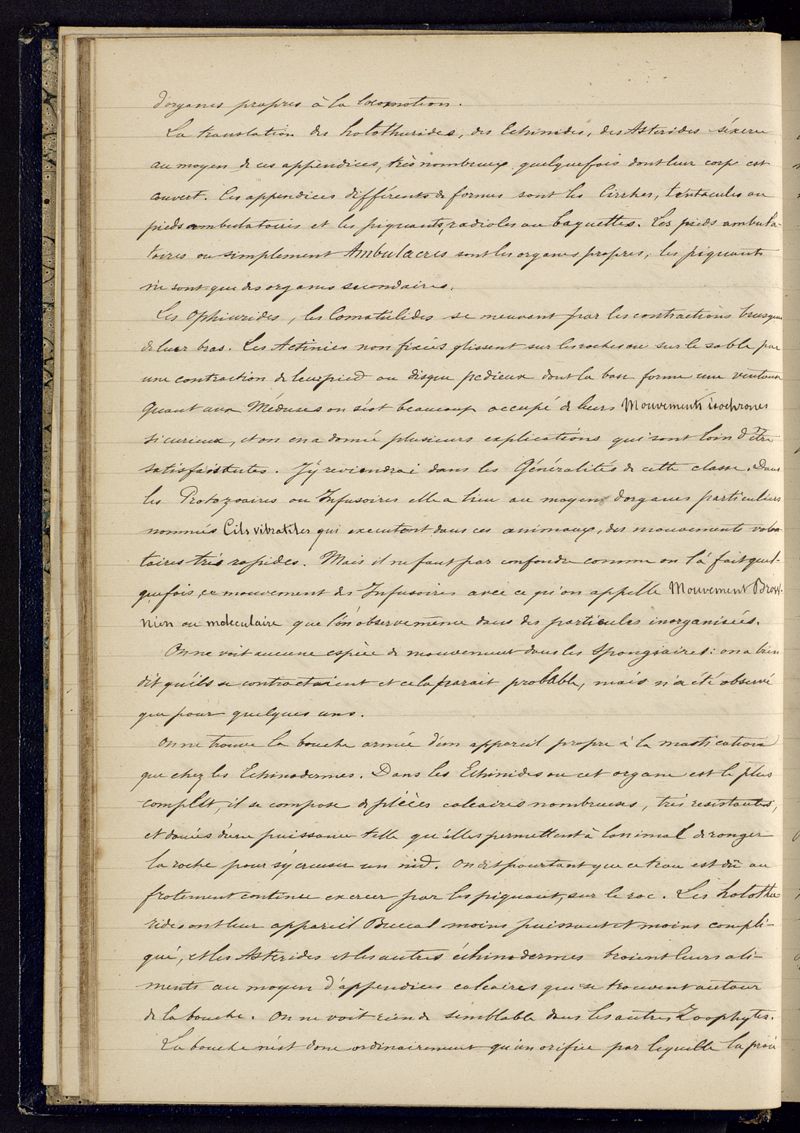 d'organes propres à la locomotion.
La translation des holothurides, des Echinides, des Astérides s'éxerce
au moyen de ces appendices, très nombreux quelquefois dont leur corps est
couvert. Ces appendices différents de formes sont les Cirrhes, tentacules ou
pieds ambulatoires et les piquants, radioles ou baguettes. Les pieds ambula-
toires ou simplement Ambulacres sont les organes propres, les piquants
ne sont que des organes secondaires.
Les Ophiurides, les Comatulides se meuvent par les contractions brusques
de leur bras. Les Actinies non fixées glissent sur les roches ou sur le sable par
une contraction de leur pied ou disque pedieux dont la base forme une ventouse
Quant aux Méduses on s'est beaucoup occupé de leurs Mouvements isochrones
si curieux, et on en a donné plusieurs explications qui sont loin d'être
satisfaisantes. J'y reviendrai dans les Généralités de cette classe. Dans
les Protozoaires ou Infusoires elle a lieu au moyen d'organes particuliers
nommés Cils vibratiles qui executent dans ces animaux, des mouvements
taires très rapides. Mais il ne faut pas confondre comme on l'a fait quel-
quefois, ce mouvement des Infusoires avec ce qu'on appelle Mouvement Brow-
nien ou moleculaire que l'on observe même dans des particules inorganisées.
On ne voit aucune espèce de mouvement dans les Spongiaires: on a bien
dit qu'ils se contractaient et cela parait probable, mais n'a été observé
que pour quelques uns.
On ne trouve la bouche armée d'un appareil propre à la mastication
que chez les Echinodermes. Dans les Echinides ou cet organe est le plus
complet, il se compose de pièces calcaires nombreuses, très resistantes,
et douées d'une puissance telle qu'elles permettent à l'animal de ronger
la roche pour s'y creuser un nid. On dit pourtant que ce trou est dû au
frotement continu exercer par les piquants, sur le roc. Les holothu
rides ont leur appareil Buccal moins puissant et moins compli-
qué, et les Astérides et les autres échinodermes broient leurs ali-
ments au moyen d'appendices calcaires qui se trouvent autour
de la bouche. On ne voit rien de semblable dans les autres Zoophytes.
La bouche n'est donc ordinairement qu'un orifice par lequelle la proie